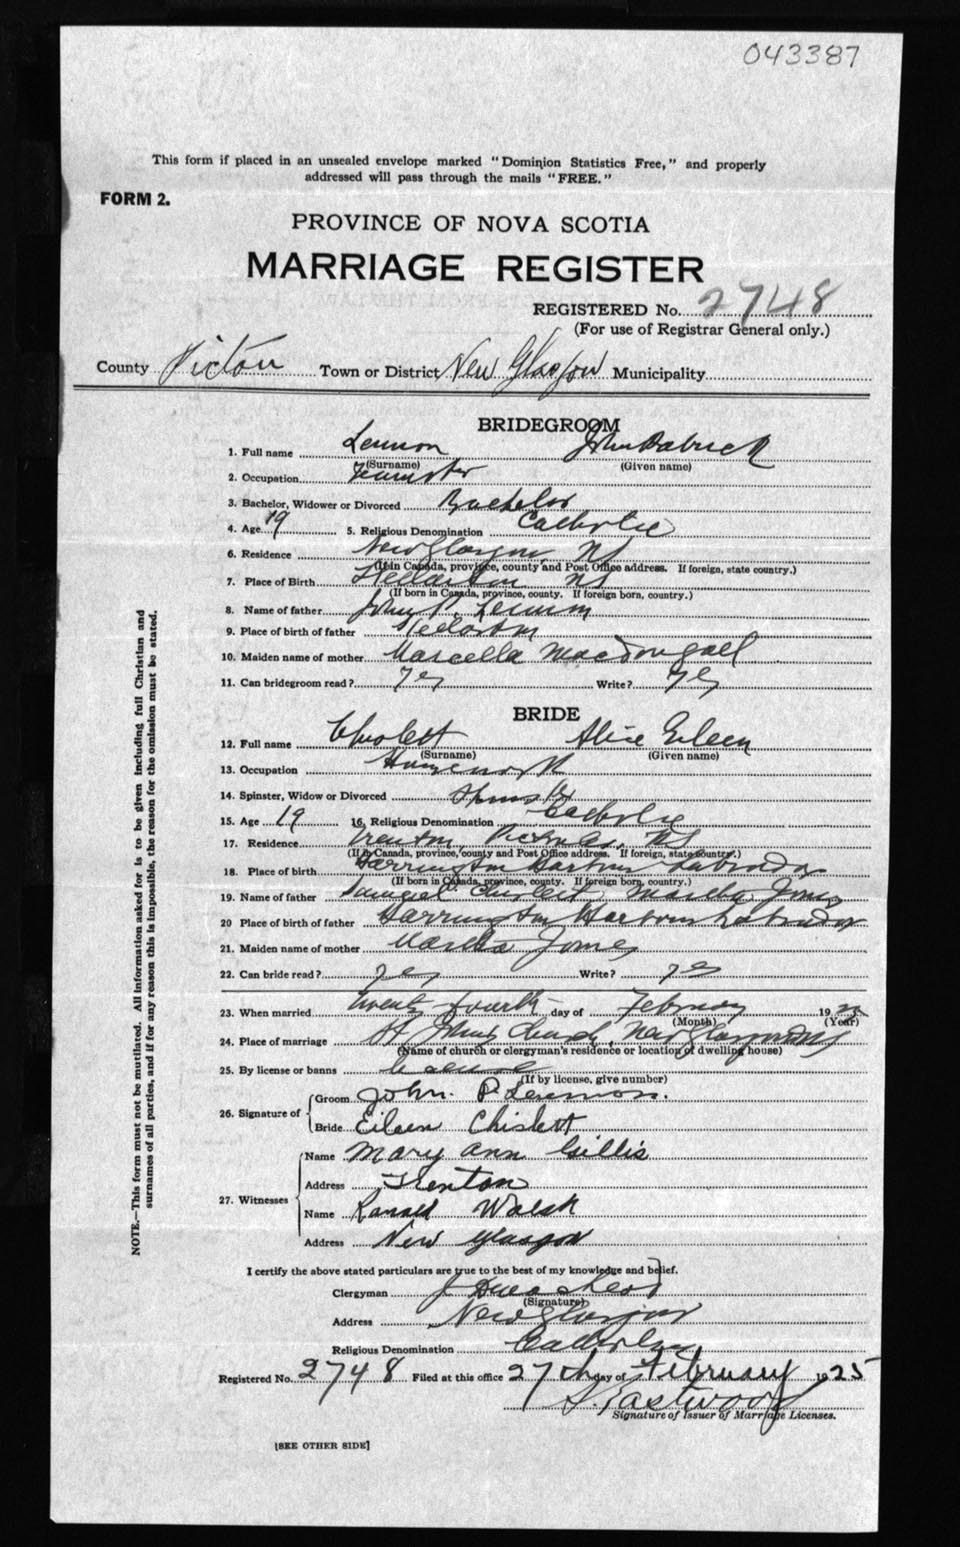 043387
This form if placed in an unsealed envelope marked "Dominion Statistics Free," and properly
addressed will pass through the mails "FREE."
FORM 2.
PROVINCE OF NOVA SCOTIA
MARRIAGE REGISTER
REGISTERED No. 2748
(For use of Registrar General only.)
County Pictou Town or District New Glasgow Municipality
BRIDEGROOM
1. Full name Lennon John Patrick
(Surname) (Given name)
2. Occupation Teamster
3. Bachelor, Widower or Divorced Bachelor
4. Age 19 5. Religious Denomination Catholic
6. Residence New Glasgow NS
(If in Canada, province, county and Post Office address. If foreign, state country.)
7. Place of Birth Stellarton NS
(If born in Canada, province, county. If foreign born, country.)
8. Name of father John P. Lennon
9. Place of birth of father Stellarton
10. Maiden name of mother Marcella MacDougall
11. Can bridegroom read? Yes Write? Yes
BRIDE
12. Full name Alice Eileen
(Surname) (Given name)
13. Occupation Housework
14. Spinster, Widow or Divorced Spinster
15. Age 19 16. Religious Denomination Catholic
17. Residence Trenton, Pictou Co. NS
(If in Canada, province, county and Post Office address. If foreign, state country.)
18. Place of birth Harrington Harbour Labrador
(If born in Canada, province, county. If foreign born, country.)
19. Name of father Samuel Chislett Martha Jones
20 Place of birth of father Harrington Harbour Labrador
21. Maiden name of mother Martha Jones
22. Can bride read? Yes Write? Yes
23. When married twenty fourth day of February 19 25
(Month) (Year)
24. Place of marriage St Johns Church, New Glasgow NS
(Name of church or clergyman's residence or location of dwelling house)
25. By license or banns License
(If by license, give number)
26. Signature of Groom John. P Lennon.
Bride Eileen Chislett
27. Witnesses
Name Mary Ann Gillis
Address Trenton
Name Ronald Walsh
Address New Glasgow
I certify the above stated particulars are true to the best of my knowledge and belief.
Clergyman J
(Signature)
Address New Glasgow
Religious Denomination Catholic
Registered No. 2748 Filed at this office 27th day of February 1925
S. Eastwood
Signature of Issuer of Marriage Licenses.
[SEE OTHER SIDE]
NOTE.—This form must not be mutilated. All information asked for is to be given including full Christian and
surnames of all parties, and if for any reason this is impossible, the reason for the omission must be stated.